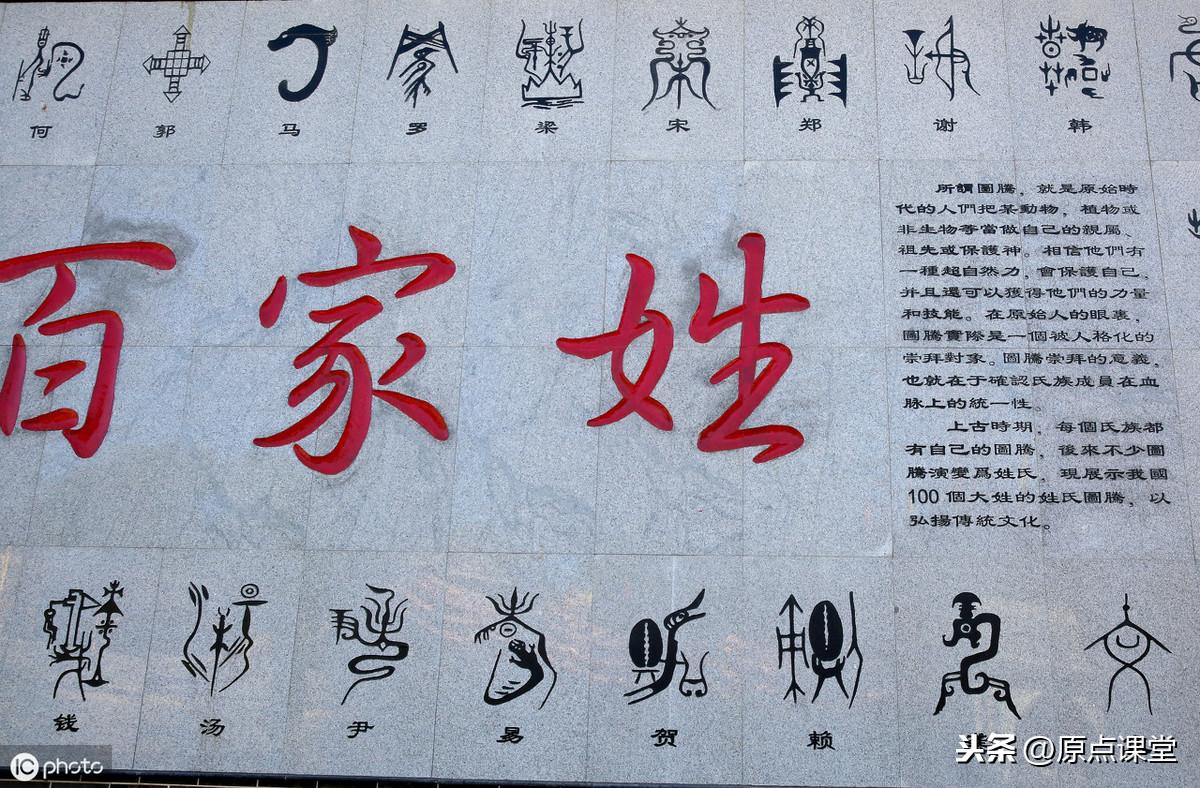 何 郭 马 罗 梁 宋 郑 谢 韩
百家姓
所謂圖騰，就是原始時
代的人們把某動物，植物或
非生物等當做自己的親屬、
祖先或保護神。相信他們有
一種超自然力，會保護自己，
并且還可以獲得他們的力量
和技能。在原始人的眼裏，
圖騰實際是一個被人格化的
崇拜對象。圖騰崇拜的意義，
也就在于確認氏族成員在血
脉上的統一性。
上古時期，每個氏族都
有自己的圖騰，後來不少圖
騰演變爲姓氏，現展示我國
100個大姓的姓氏圖騰，以
弘揚傳統文化。
钱 汤 尹 易 贺 赖
IC photo
头条 @原点课堂